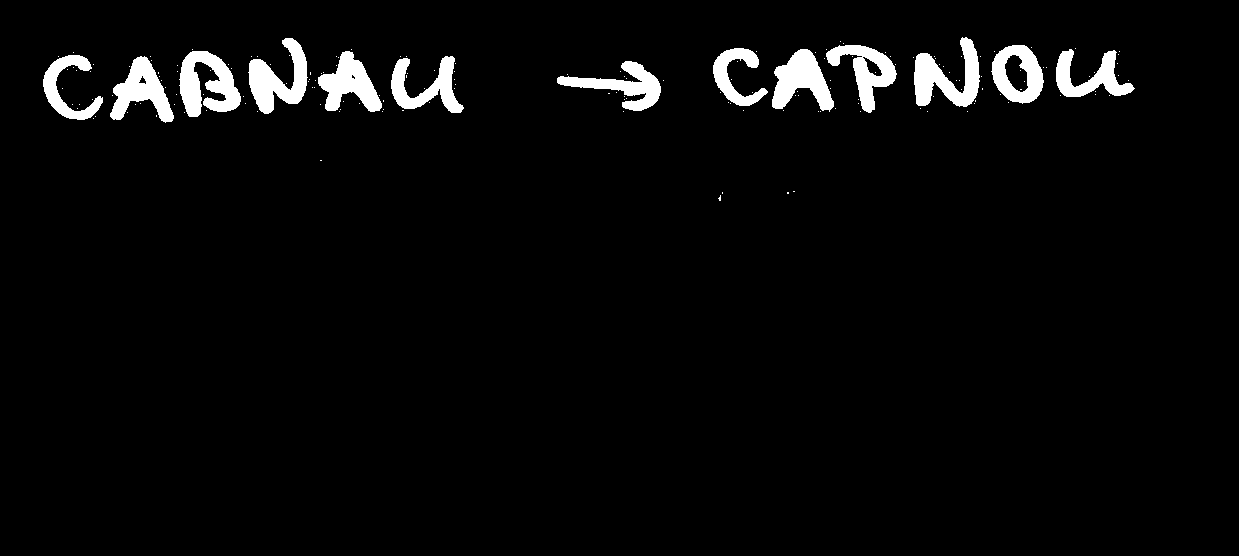 CABNAU → CAPNOU